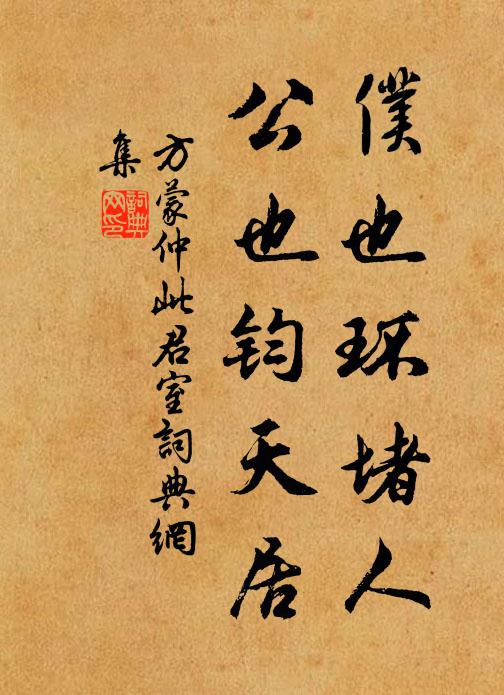 僕也环堵人
公也钧天居
方蒙仲此君室詞典網
集
詞典网印